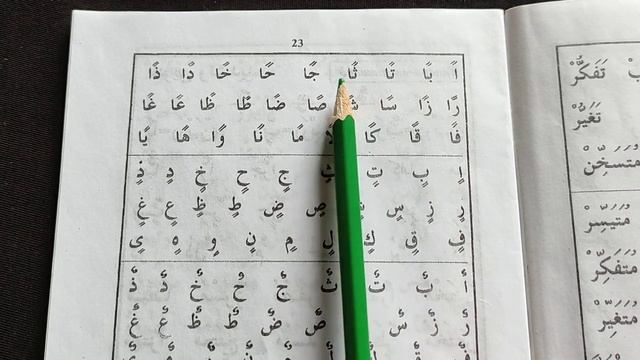 23
اً بًا تًا ثًا جًا حًا خًا دًا ذًا
رًا زًا سًا صًا ضًا طًا ظًا عًا غًا
فًا قًا كًا مًا نًا وًا هًا يًا
اٍ بٍ تٍ ثٍ جٍ حٍ خٍ دٍ ذٍ
رٍ زٍ سٍ صٍ ضٍ طٍ ظٍ عٍ غٍ
فٍ قٍ كٍ لٍ مٍ نٍ وٍ هٍ ىٍ
اٌ بٌ تٌ ثٌ جٌ حٌ خٌ دٌ ذٌ
رٌ زٌ سٌ صٌ ضٌ طٌ ظٌ عٌ غٌ
تَفَكُّرٌ
تَغَيُّرٌ
مُتَسَخِّنٌ
مُتَيَسِّرٌ
مُتَفَكِّرٌ
مُتَغَيِّرٌ